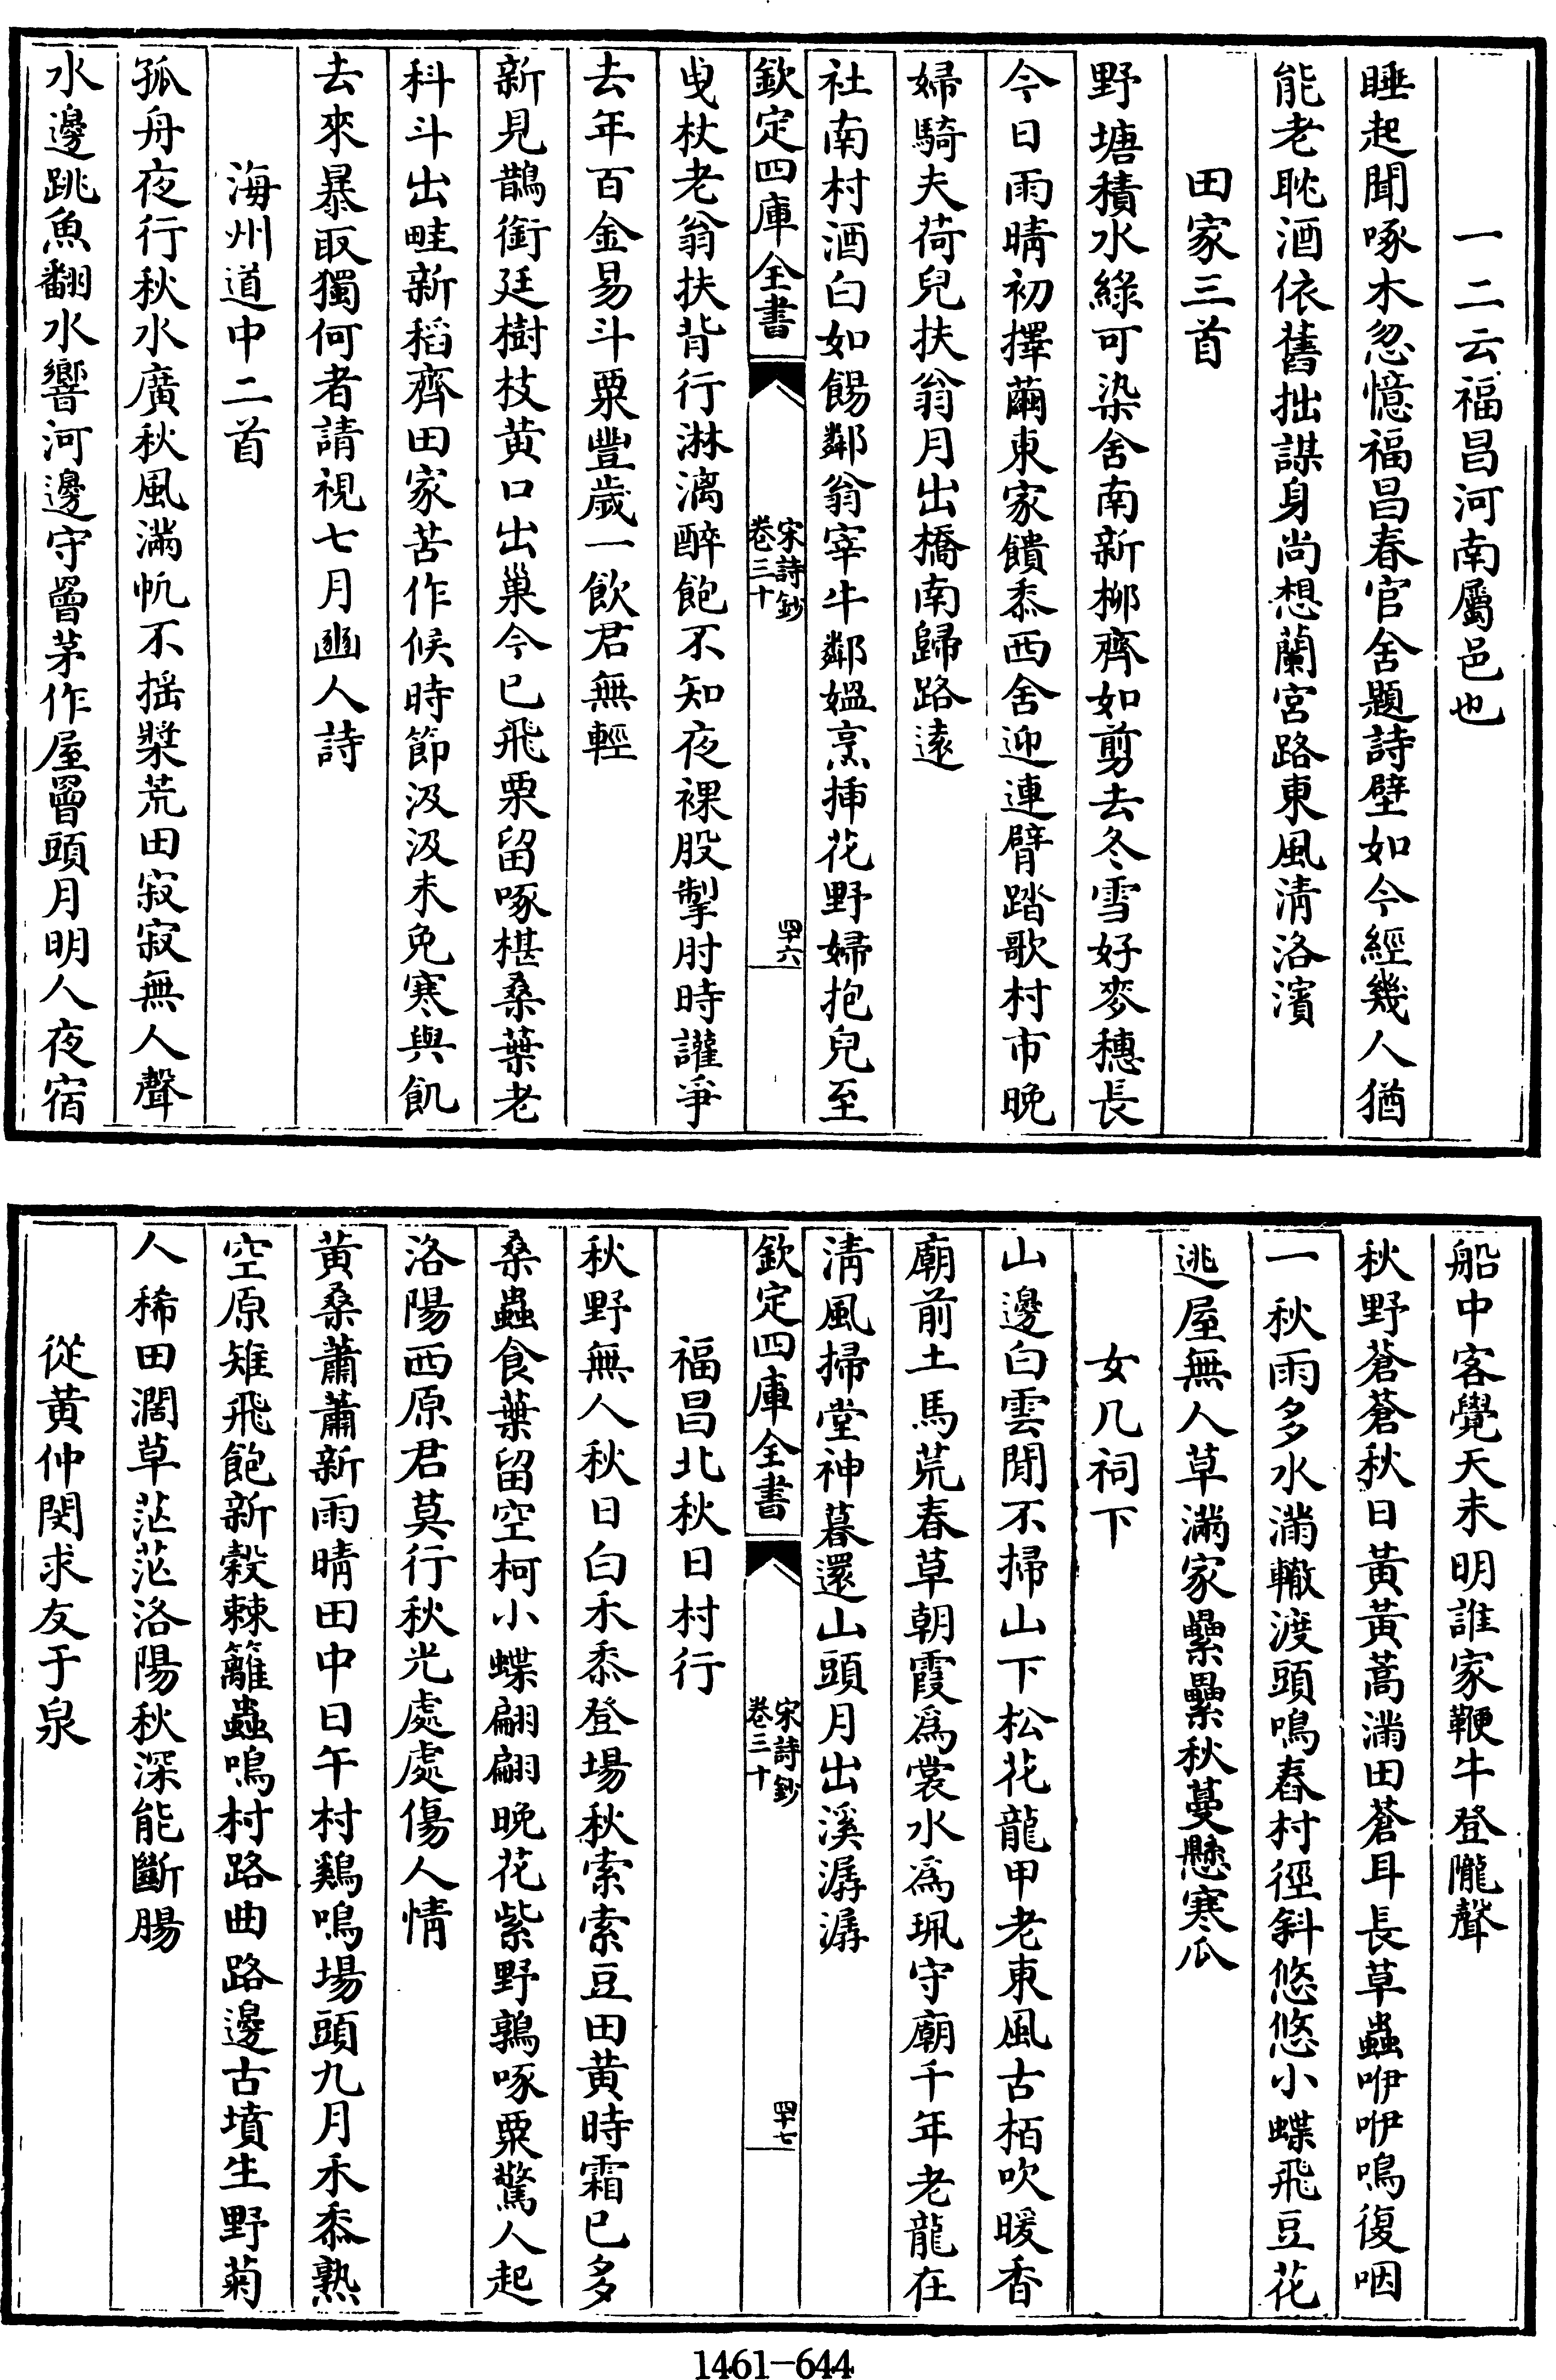 一二云福昌河南屬邑也
睡起聞啄木忽憶福昌春官舍題詩壁如今經幾人猶
能老耽酒依舊拙謀身尚想蘭宮路東風清洛濱
田家三首
野塘積水綠可染舍南新柳齊如剪去冬雪好麥穗長
今日雨晴初擇繭東家饋黍西舍迎連臂踏歌村市晚
婦騎夫荷兒扶翁月出橋南歸路遠
社南村酒白如餳鄰翁宰牛鄰媼烹挿花野婦抱兒至
欽定四庫全書
宋詩鈔
卷三十
四十六
曵杖老翁扶背行淋漓醉飽不知夜裸股掣肘時讙爭
去年百金易斗粟豐歲一飲君無輕
新見鵲銜廷樹枝黄口出巢今已飛栗留啄椹桑葉老
科斗出畦新稻齊田家苦作候時節汲汲未免寒與飢
去來暴取獨何者請視七月豳人詩
海州道中二首
孤舟夜行秋水廣秋風滿帆不揺槳荒田寂寂無人聲
水邊跳魚翻水響河邊守罾茅作屋罾頭月明人夜宿
船中客覺天未明誰家鞭牛登隴聲
秋野蒼蒼秋日黄黄蒿滿田蒼耳長草蟲咿咿鳴復咽
一秋雨多水滿轍渡頭鳴舂村徑斜悠悠小蝶飛豆花
逃屋無人草滿家纍纍秋蔓懸寒瓜
女几祠下
山邊白雲閒不掃山下松花龍甲老東風古栢吹暖香
廟前土馬荒春草朝霞爲裳水爲珮守廟千年老龍在
清風掃堂神暮還山頭月出溪潺潺
欽定四庫全書
宋詩鈔
卷三十
四十七
福昌北秋日村行
秋野無人秋日白禾黍登場秋索索豆田黄時霜已多
桑蟲食葉留空柯小蝶翩翩晚花紫野鶉啄粟驚人起
洛陽西原君莫行秋光處處傷人情
黄桑蕭蕭新雨晴田中日午村鷄鳴場頭九月禾黍熟
空原雉飛飽新穀棘籬蟲鳴村路曲路邊古墳生野菊
人稀田濶草茫茫洛陽秋深能斷腸
從黄仲閔求友于泉
1461-644